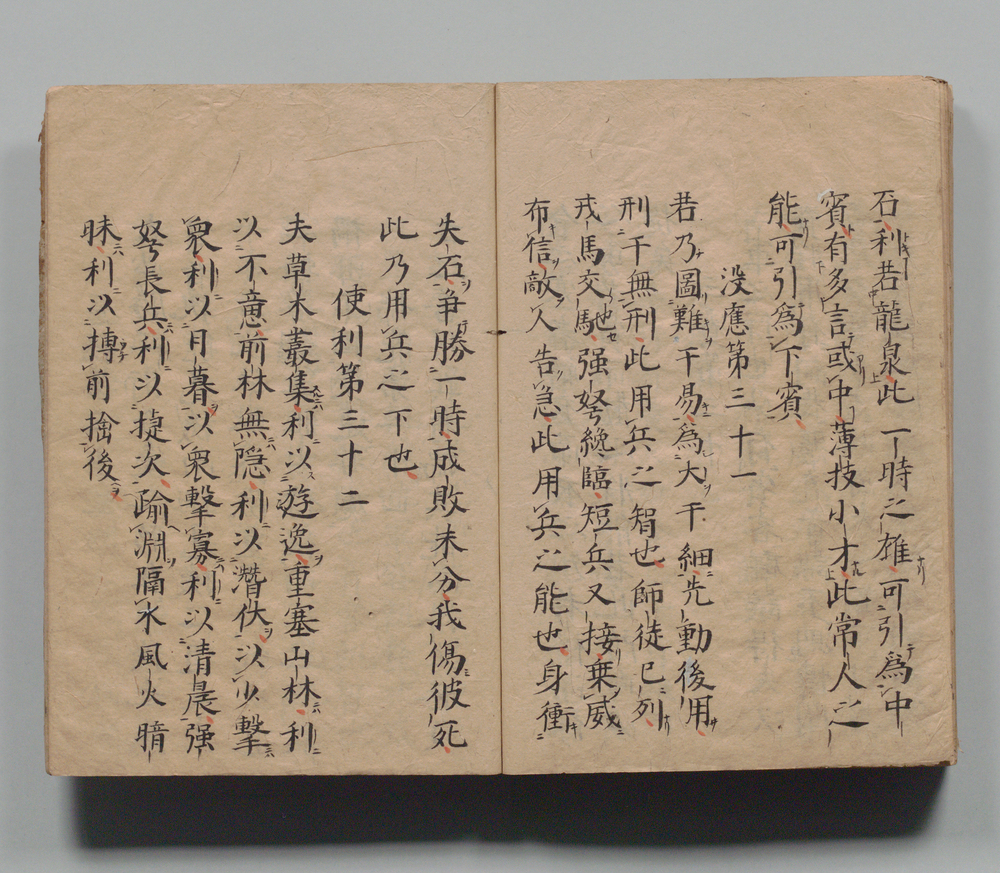 石利若龍泉此一時之雄可引爲中
賓有多言或中薄技小才此常人之
能可引爲下賓
没應第三十一
若乃圖難干易爲大干細先動後用
刑干無刑此用兵之智也師徒已列
戎馬交馳强弩纔臨短兵又接乗威
布信敵人告急此用兵之能也身衝
失石争勝一時成敗未分我傷彼死
此乃用兵之下也
使利第三十二
夫草木叢集利以遊逸重塞山林利
以不意前林無隠利以潜伏以少擊
衆利以日暮以衆擊寡利以清晨强
弩長兵利以捷次踰淵隔水風火暗
昧利以搏前擒後